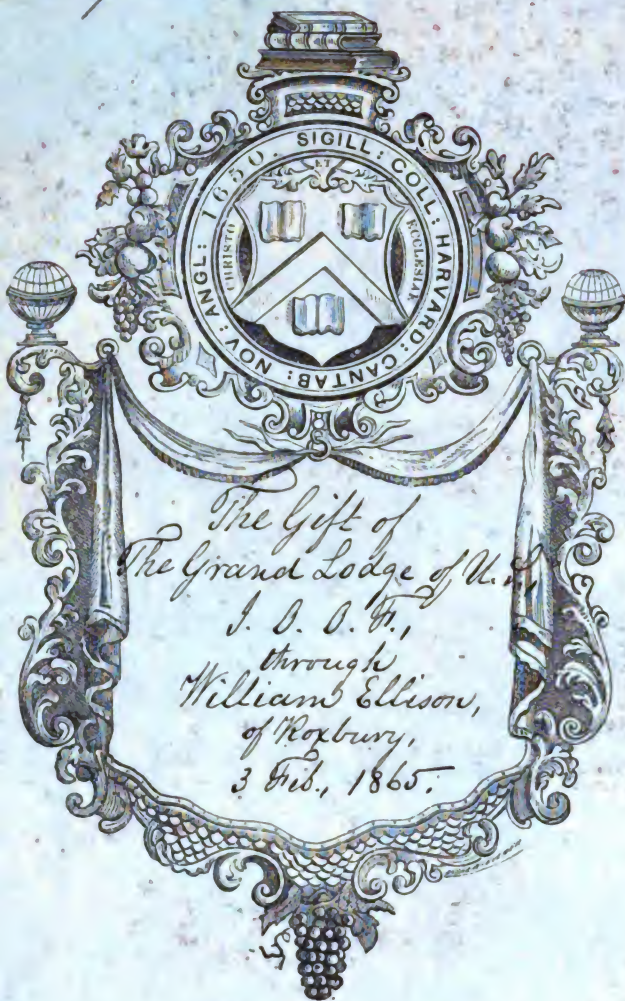 SIGILL: COLL: HARVARD: CANTAB: NOV: ANGL: 1650.
ET
CHRISTO
ECCLESIAE
The Gift of
The Grand Lodge of U. S.,
I. O. O. F.,
through
William Ellison,
of Roxbury,
3 Feb., 1865.